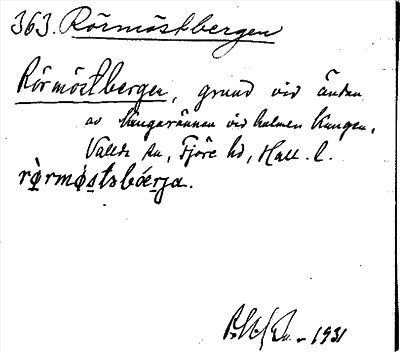 363. Rörmöstbergen
Rörmöstbergen, grund vid änden
av Kungarännan vid holmen Kungen,
Vallda sn, Fjäre hd, Hall. l.
rö̀rmøstsbǿerja.
1931